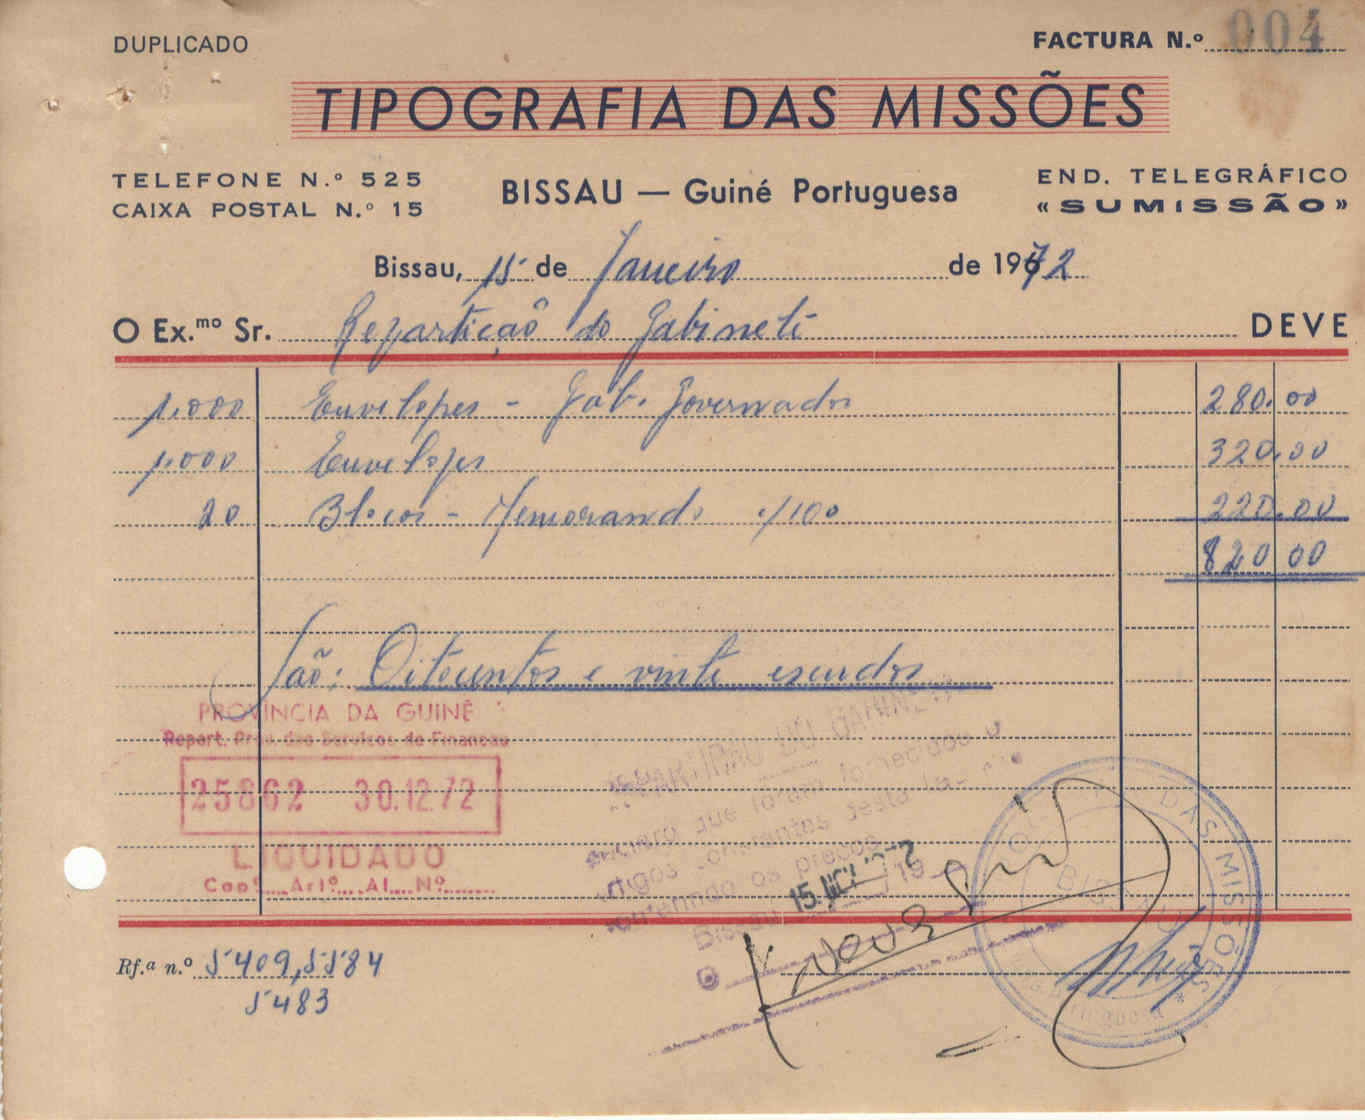 DUPLICADO
FACTURA N.º 004
TIPOGRAFIA DAS MISSÕES
TELEFONE N.º 525
CAIXA POSTAL N.º 15
BISSAU — Guiné Portuguesa
END. TELEGRÁFICO
«SUMISSÃO»
Bissau, 15 de Janeiro de 1972
O Ex.mo Sr. Repartição do Gabinete DEVE
1.000 Envelopes - Gab. Governador 280.00
1.000 Envelopes 320.00
20 Blocos - Memorando ./100 220.00
820 00
São: Oitocentos e vinte escudos
PROVÍNCIA DA GUINÉ
Repart. Prov. dos Serviços de Finanças
25862 30.12.72
LIQUIDADO
Capº Artº Al. Nº
REPARTIÇÃO DO GABINETE
que foram fornecidos o
artigos constantes desta
conferindo os preços
Bissau 15 19
DAS MISSÕES
BISSAU
Rf.ª n.º 5409, 5584
5483